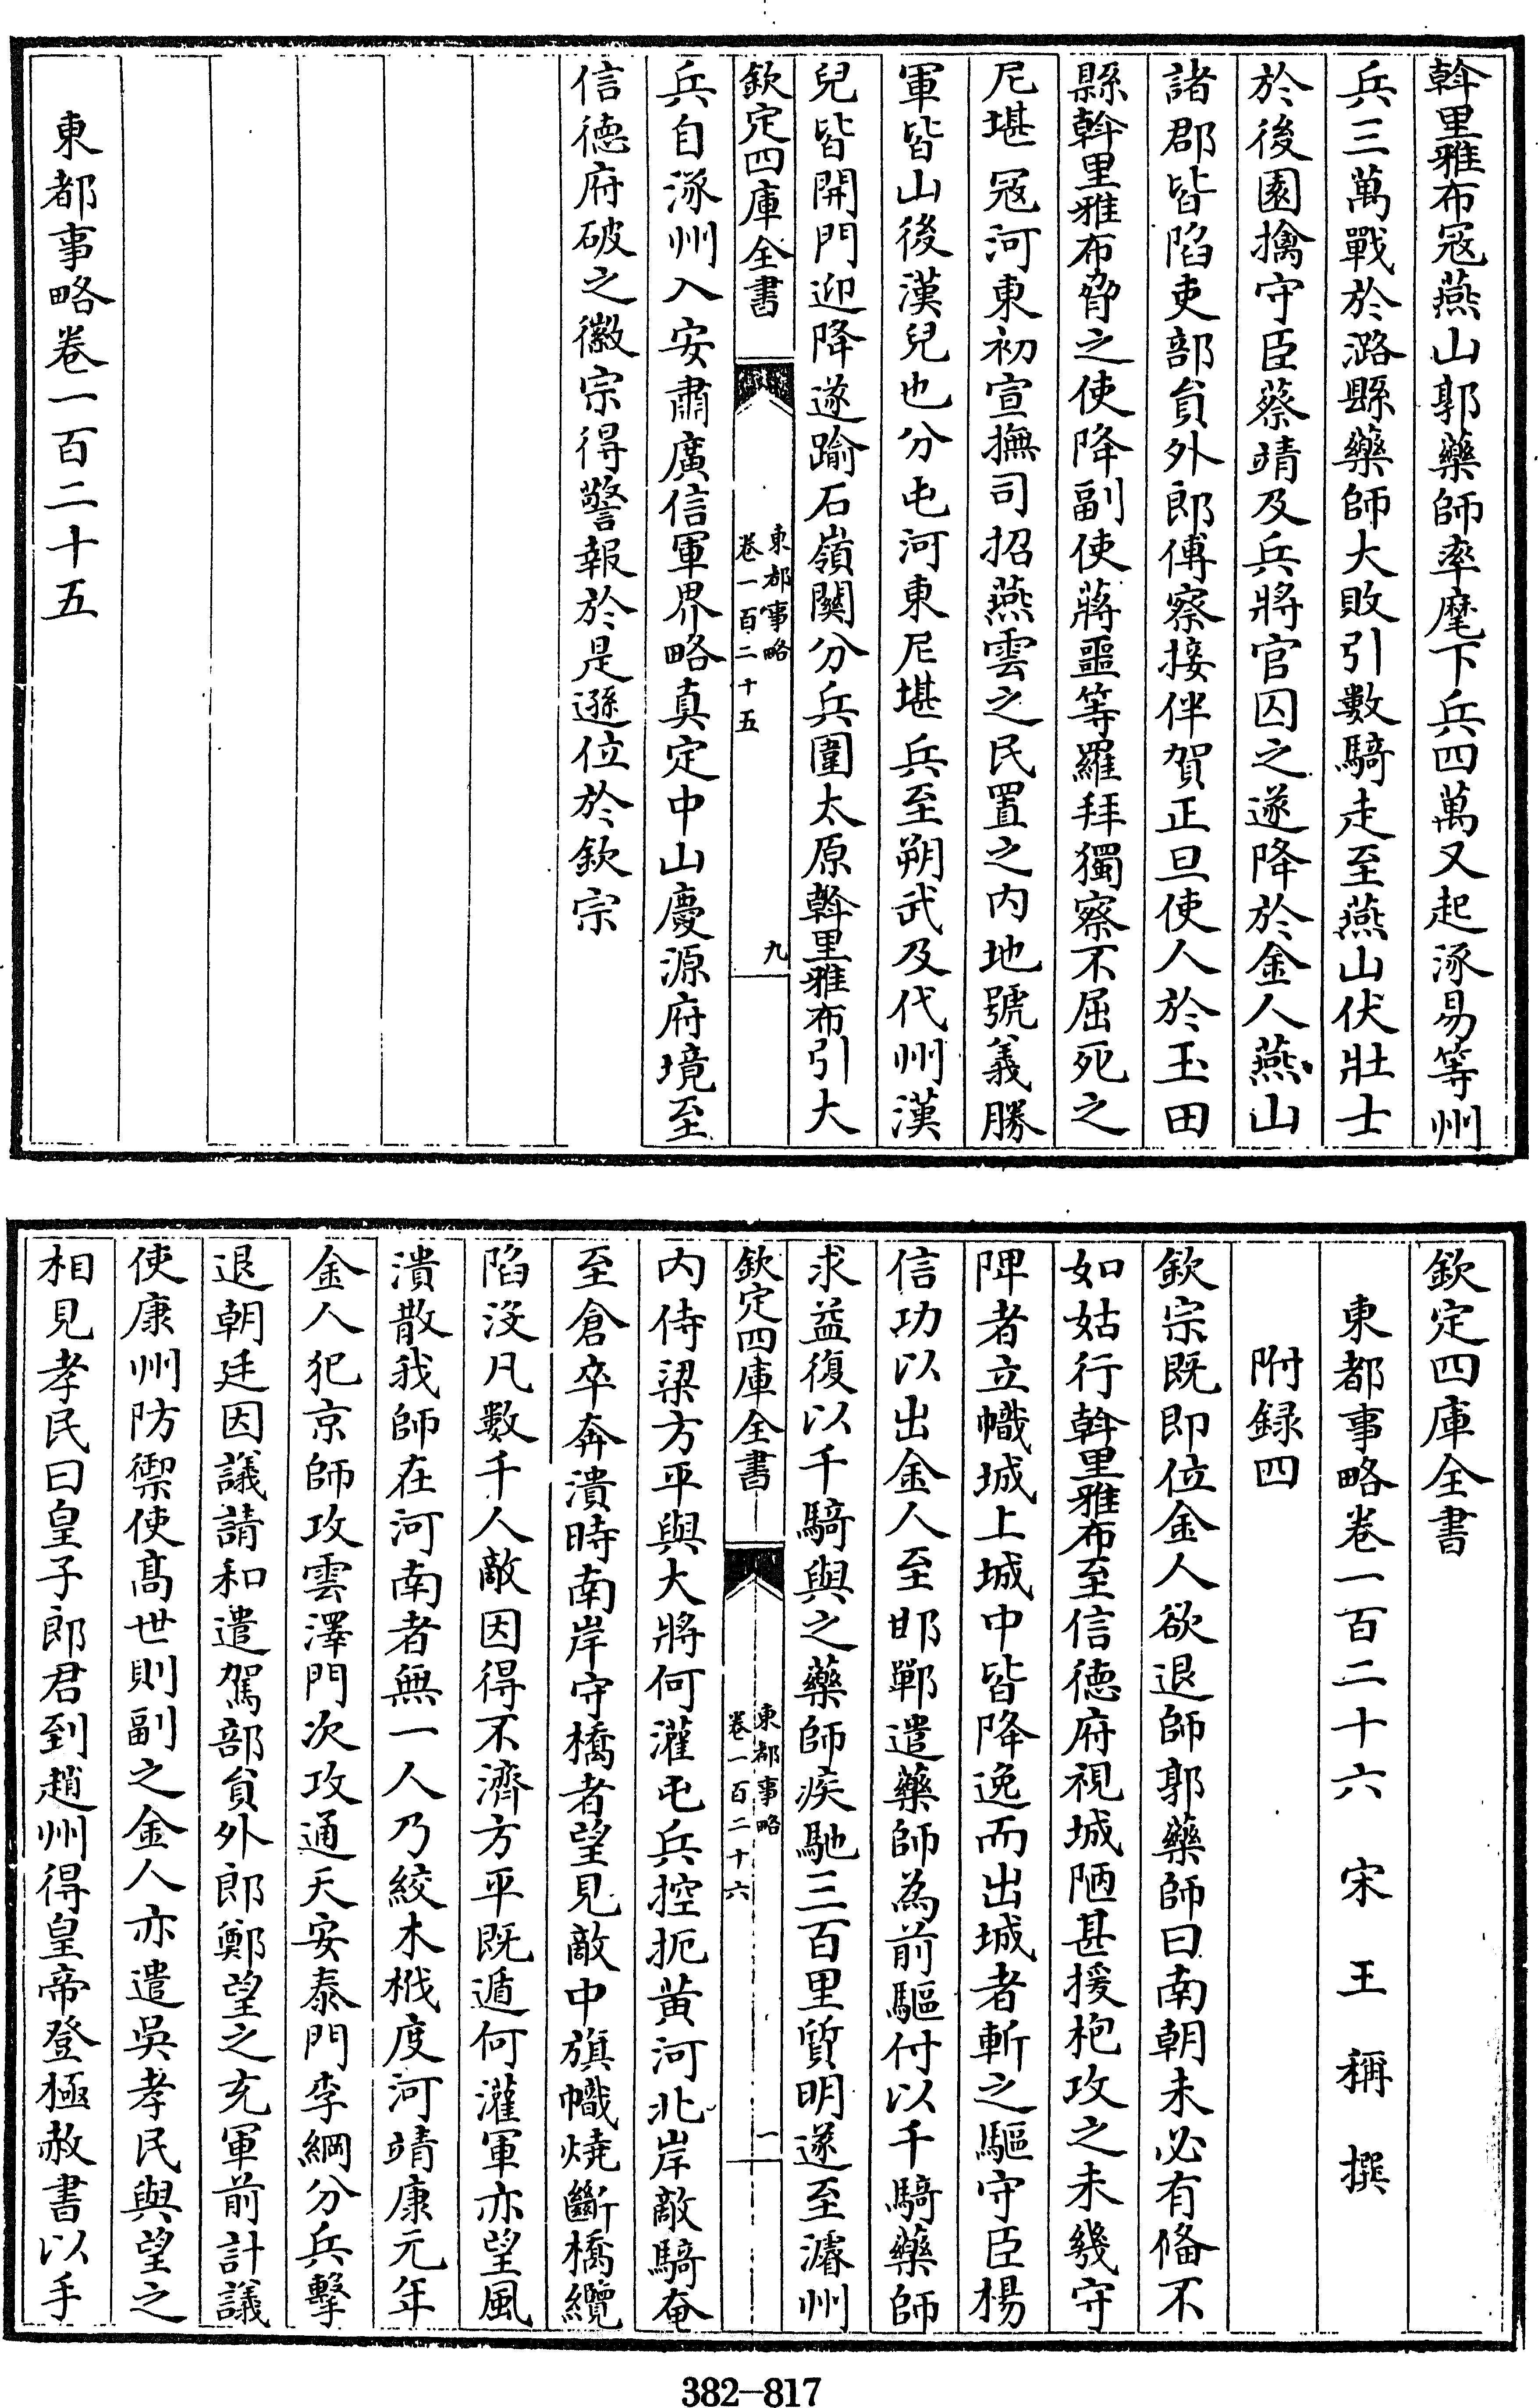 斡里雅布冦燕山郭藥師率麾下兵四萬又起涿易等州
兵三萬戰於潞縣藥師大敗引數騎走至燕山伏壯士
於後園擒守臣蔡靖及兵將官囚之遂降於金人燕山
諸郡皆陷吏部貟外郎傅察接伴賀正旦使人於玉田
縣斡里雅布脅之使降副使蔣噩等羅拜獨察不屈死之
尼堪冦河東初宣撫司招燕雲之民置之内地號義勝
軍皆山後漢兒也分屯河東尼堪兵至朔武及代州漢
兒皆開門迎降遂踰石嶺關分兵圍太原斡里雅布引大
欽定四庫全書 東都事略 卷一百二十五 九
兵自涿州入安肅廣信軍界略真定中山慶源府境至
信徳府破之徽宗得警報於是遜位於欽宗
東都事略卷一百二十五
欽定四庫全書
東都事略卷一百二十六 宋 王稱 撰
附録四
欽宗既即位金人欲退師郭藥師曰南朝未必有備不
如姑行斡里雅布至信徳府視城陋甚援枹攻之未幾守
陴者立幟城上城中皆降逸而出城者斬之驅守臣楊
信功以出金人至邯鄲遣藥師為前驅付以千騎藥師
求益復以千騎與之藥師疾馳三百里質明遂至濬州
欽定四庫全書 東都事略 卷一百二十六 一
内侍梁方平與大將何灌屯兵控扼黄河北岸敵騎奄
至倉卒奔潰時南岸守橋者望見敵中旗幟燒斷橋纜
陷没凡數千人敵因得不濟方平既遁何灌軍亦望風
潰散我師在河南者無一人乃絞木栰度河靖康元年
金人犯京師攻雲澤門次攻通天安泰門李綱分兵擊
退朝廷因議請和遣駕部貟外郎鄭望之充軍前計議
使康州防禦使髙世則副之金人亦遣吳孝民與望之
相見孝民曰皇子郎君到趙州得皇帝登極赦書以手
382-817